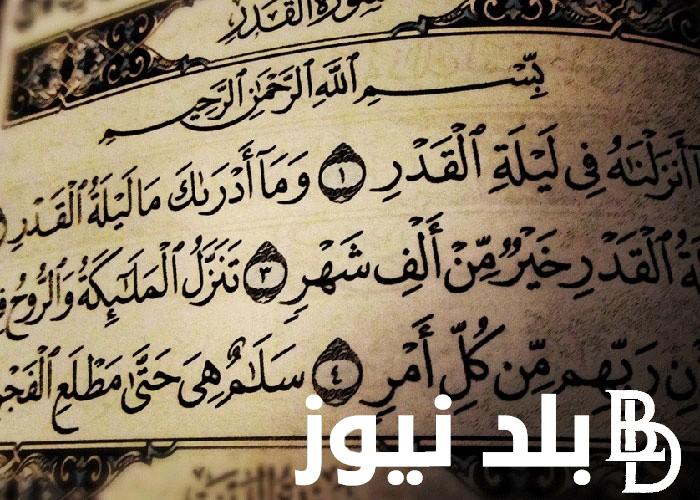 سورة القدر
بِسْمِ ٱللَّهِ ٱلرَّحْمَٰنِ ٱلرَّحِيمِ
أَنزَلْنَٰهُ فِى لَيْلَةِ ٱلْقَدْرِ ١ وَمَآ أَدْرَىٰكَ مَا لَيْلَةُ ٱلْقَدْرِ
ٱلْقَدْرِ خَيْرٌ مِّنْ أَلْفِ شَهْرٍ ٣ تَنَزَّلُ ٱلْمَلَٰٓئِكَةُ وَٱلرُّوحُ
رَبِّهِم مِّن كُلِّ أَمْرٍ ٤ سَلَٰمٌ هِىَ حَتَّىٰ مَطْلَعِ ٱلْفَجْرِ
بلد نيوز BD